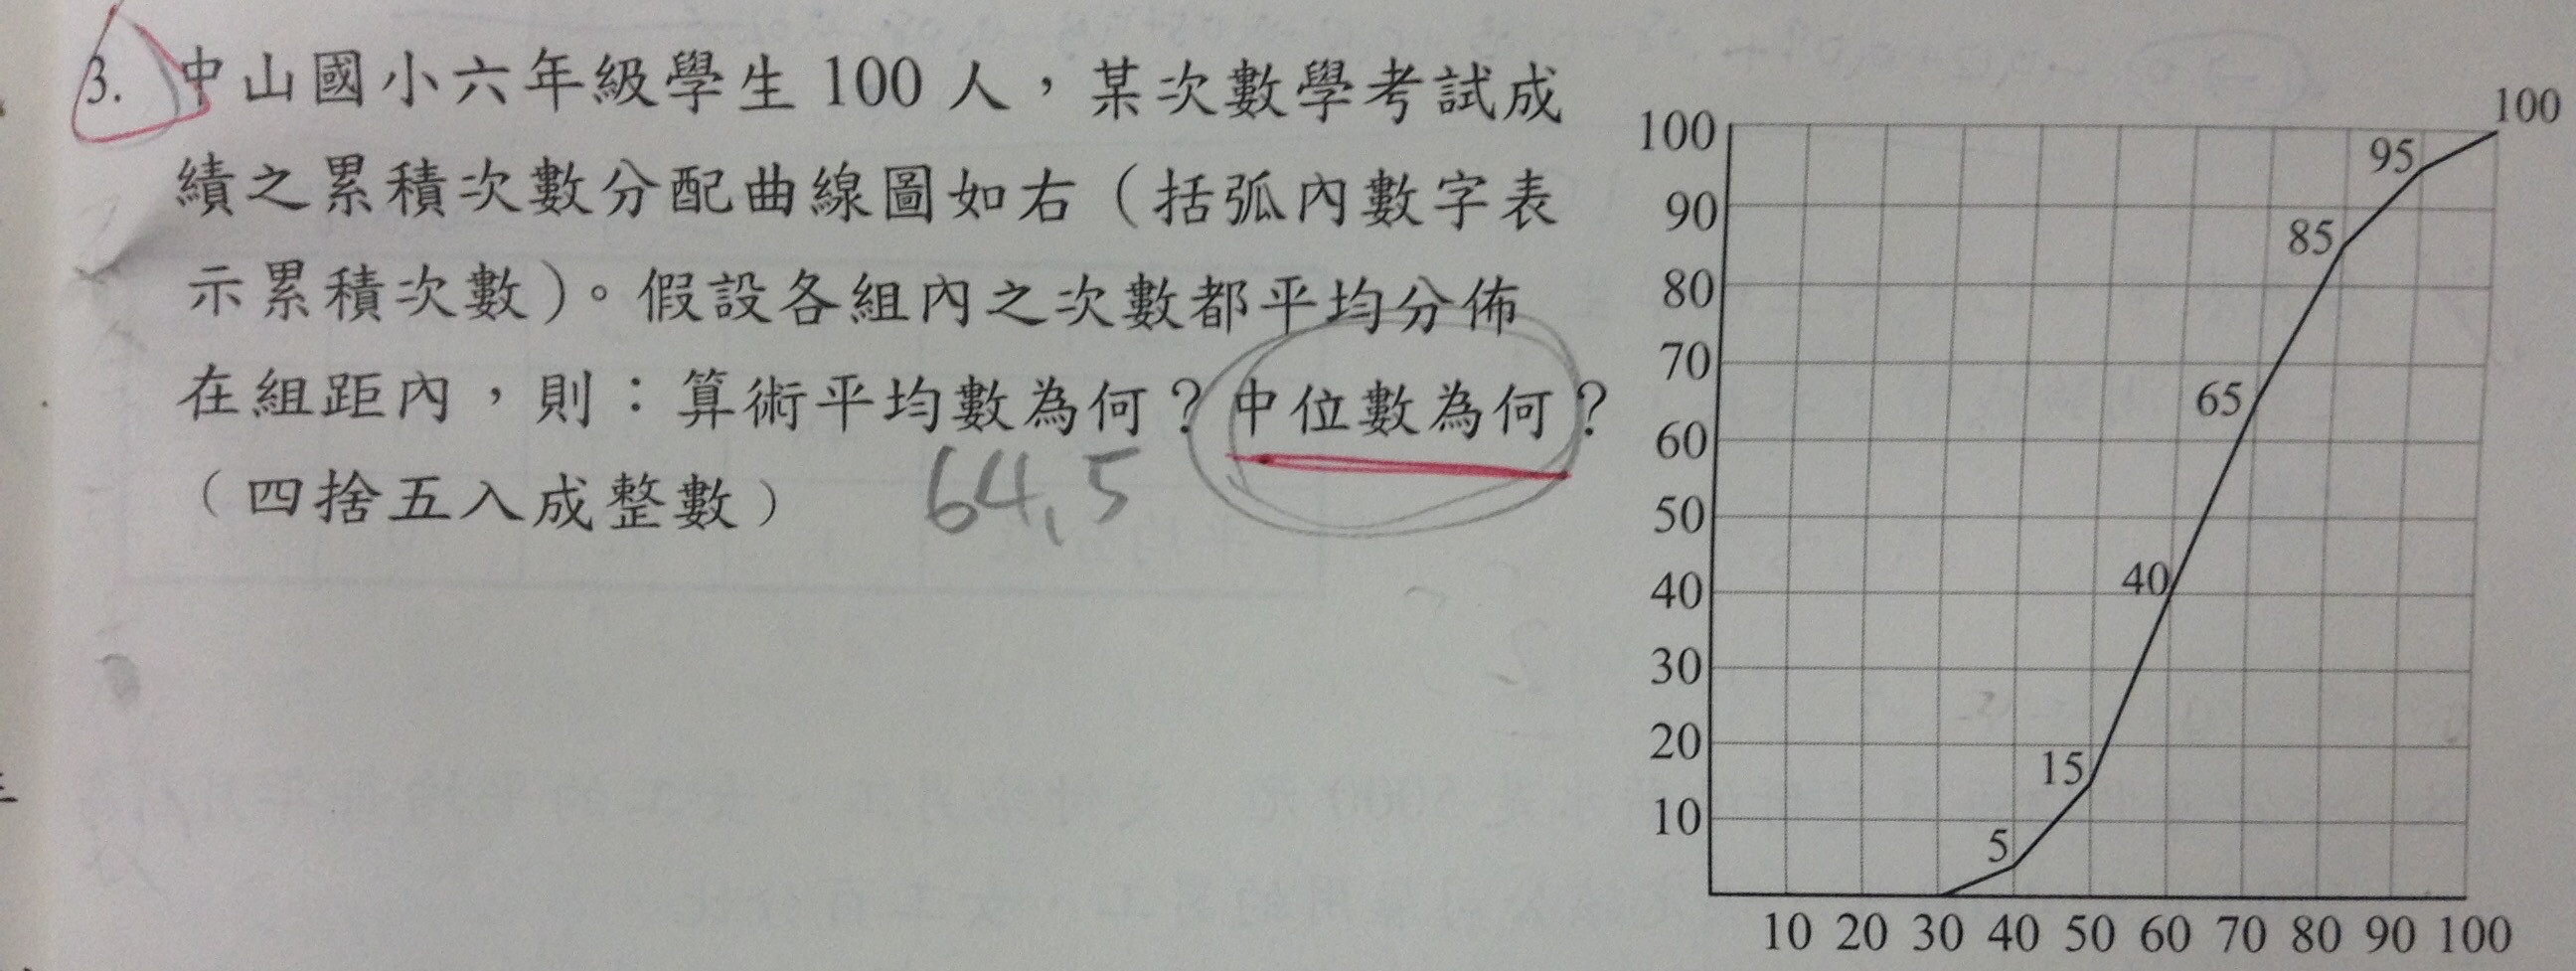 3. 中山國小六年級學生 100 人，某次數學考試成
績之累積次數分配曲線圖如右（括弧內數字表
示累積次數）。假設各組內之次數都平均分佈
在組距內，則：算術平均數為何？中位數為何？
（四捨五入成整數）
64.5
100
100
95
90
85
80
70
65
60
50
40
40
30
20
15
10
5
10 20 30 40 50 60 70 80 90 100